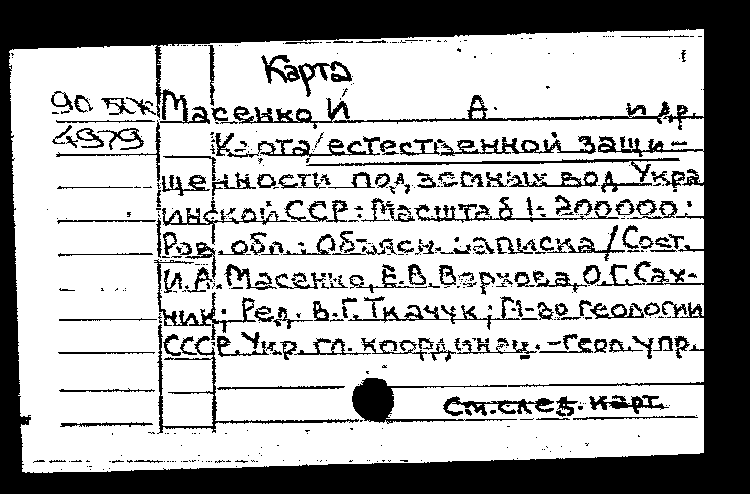 Карта
90 50к Масенко, И А. и др.
4979 Карта естественной защи-
щенности подземных вод Укра
инской ССР: Масштаб 1: 200000:
Ров. обл.: Объясн. записка / Сост.
И.А. Масенко, Е.В. Верхова, О.Г. Сах-
ник; Ред. В.Г. Ткачук; М-во геологии
СССР. Укр. гл. координац.-геол. упр.
См. след. карт.